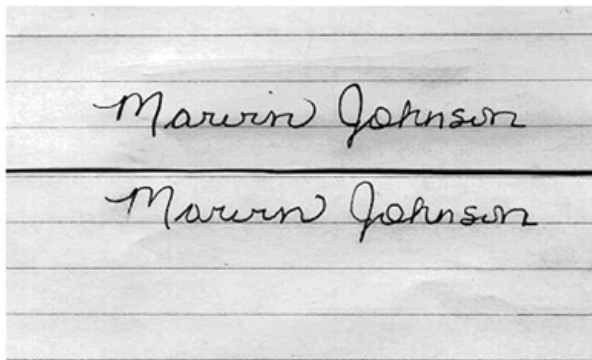 Marvin Johnson
Marvin Johnson